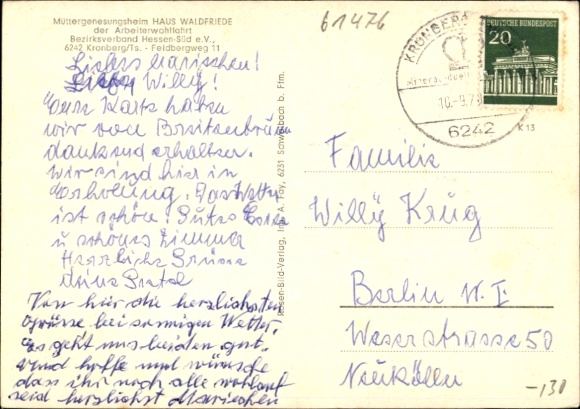 Müttergenesungsheim HAUS WALDFRIEDE
der Arbeiterwohlfahrt
Bezirksverband Hessen-Süd e.V.,
6242 Kronberg/Ts. - Feldbergweg 11
61476
DEUTSCHE BUNDESPOST
20
KRONBERG
10.-9.7
6242
K 13
Liebes Mariechen!
Lieber Willy!
Eure Karte haben
wir von
dankend erhalten.
wir sind hier in
Erholung. Das Wetter
ist schön. Gutes Essen
u schönes Zimmer
Herzliche Grüsse
deine
Von hier die herzlichsten
Grüsse bei sonnigen Wetter.
Es geht uns beiden gut.
und hoffe und wünsche
dass ihr noch alle wohlauf
seid herzlichst Mariechen
Verlag, Inh. A. Fay, 6231 Schwalbach b. Ffm.
Familie
Willÿ Krug
Berlin
Weserstrasse 50
Neukölln
-130